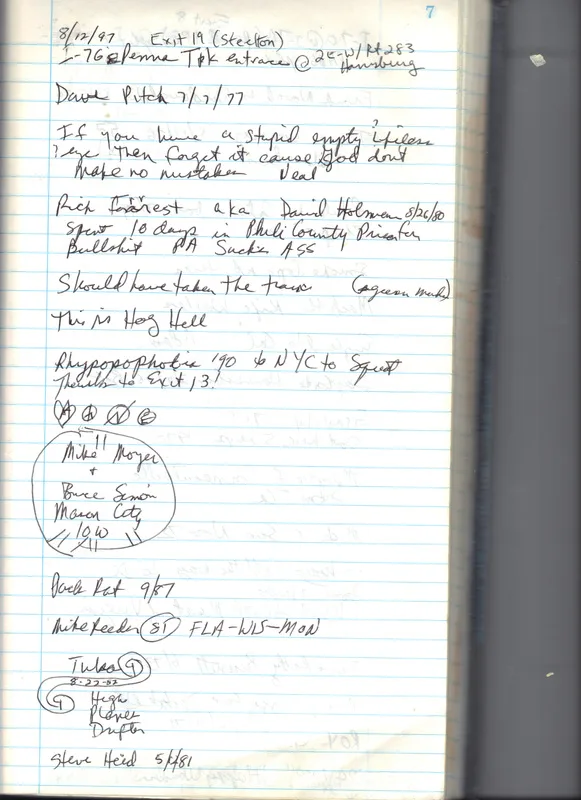 7
8/12/97 Exit 19 (Steelton)
I-76 Penna Tpk entrance @ 2E-W/Rt 283
Harrisburg
Dave Pitch 7/7/77
If you have a stupid empty
? eye then forget it cause god dont
make no mistakes Neal
Rich Forrest aka David Holman 8/26/80
spent 10 days in Phili County Prison for
Bullshit PA Sucks ASS
Should have taken the train
This is Hog Hell
Rhypopophobia '90 to NYC to Squat
Thanks to Exit 13!
A A N E
Mike Moyer
+
Bruce Simon
Mason City
IOW
Pack Rat 9/87
Mike Reeder 81 FLA-WIS-MON
8-27-82
High
Planes
Drifter
Steve Heid 5/1/81